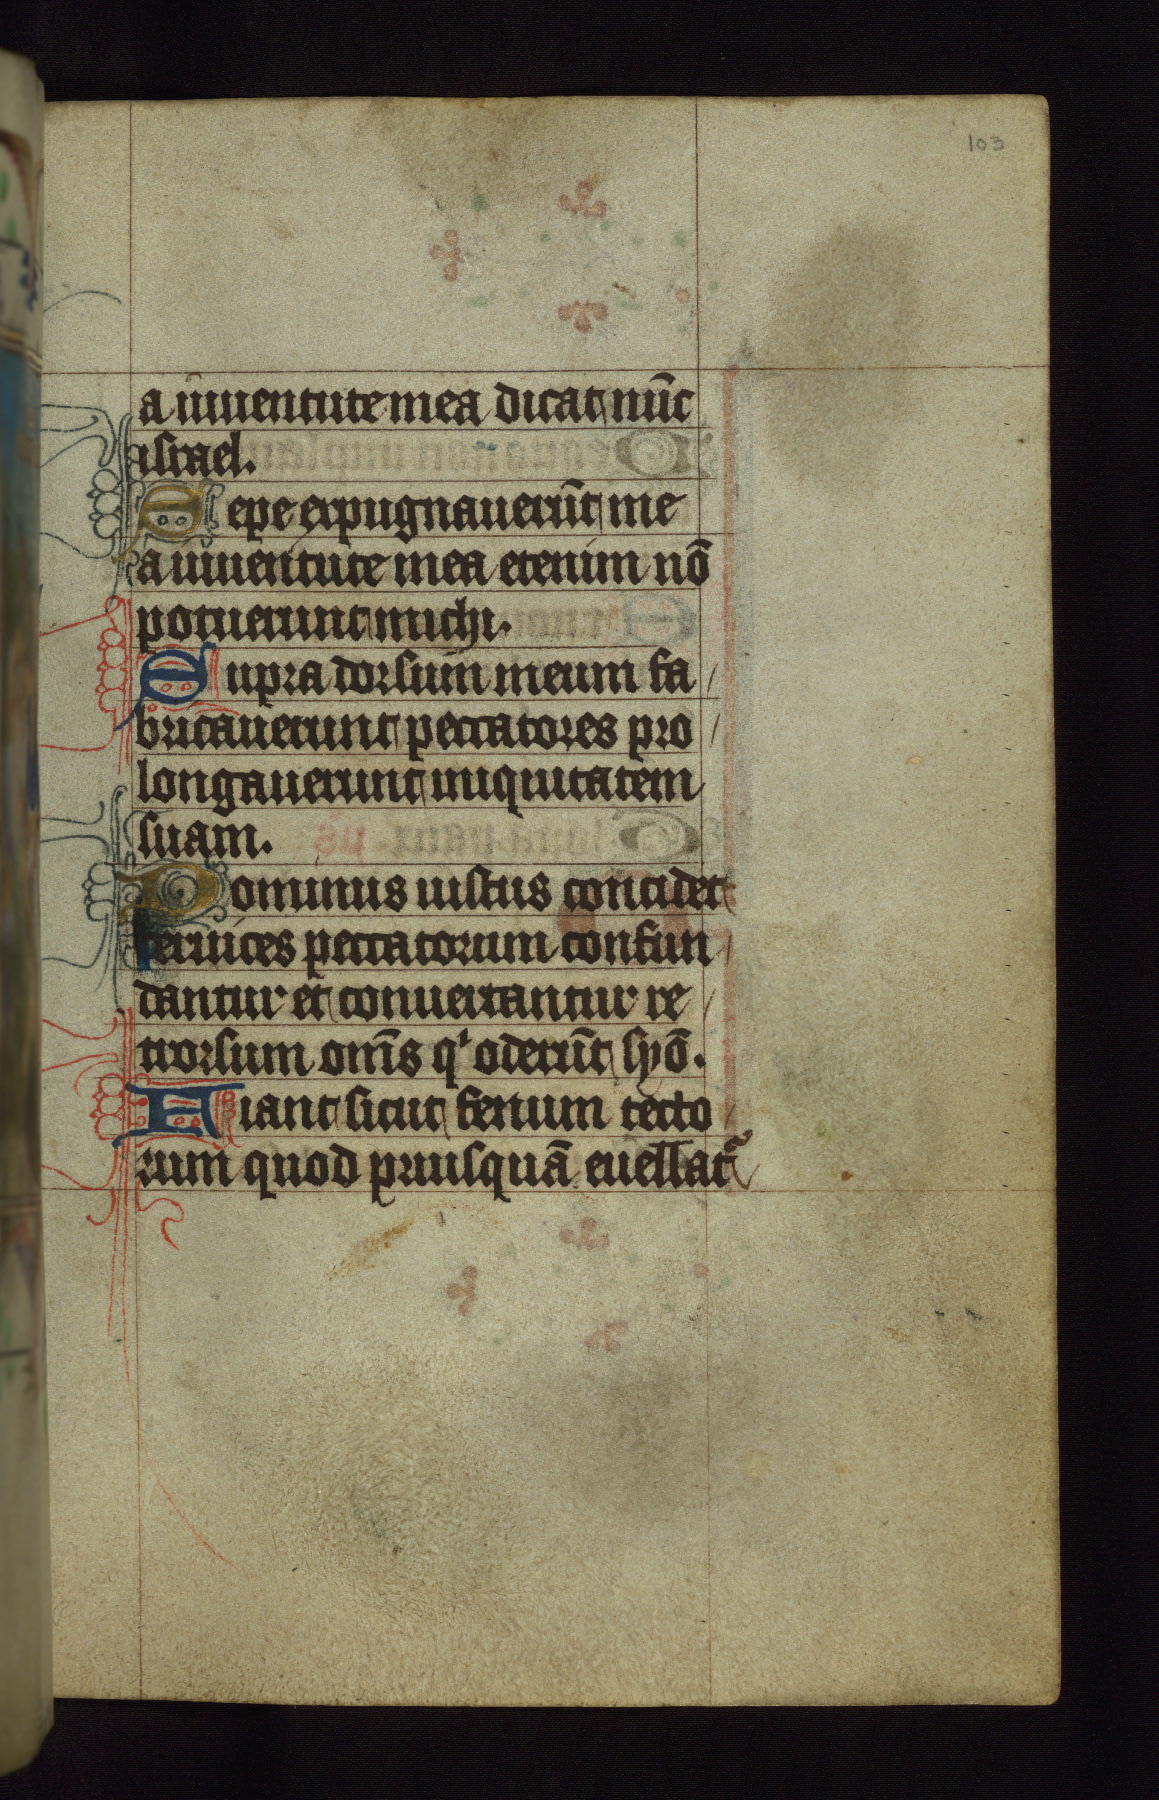 103
a iuuentute mea dicat nūc
israel.
Sepe expugnauerūt me
a iuuentute mea etenim nō
potuerunt michi.
Supra dorsum meum fa
bricauerunt peccatores pro
longauerunt iniquitatem
suam.
Dominus iustus concidet
ceruices peccatorum confun
dantur et conuertantur re
trorsum om̄s qⁱ oderūt syō.
Fiant sicut fenum tecto
rum quod priusquā euellat᷑